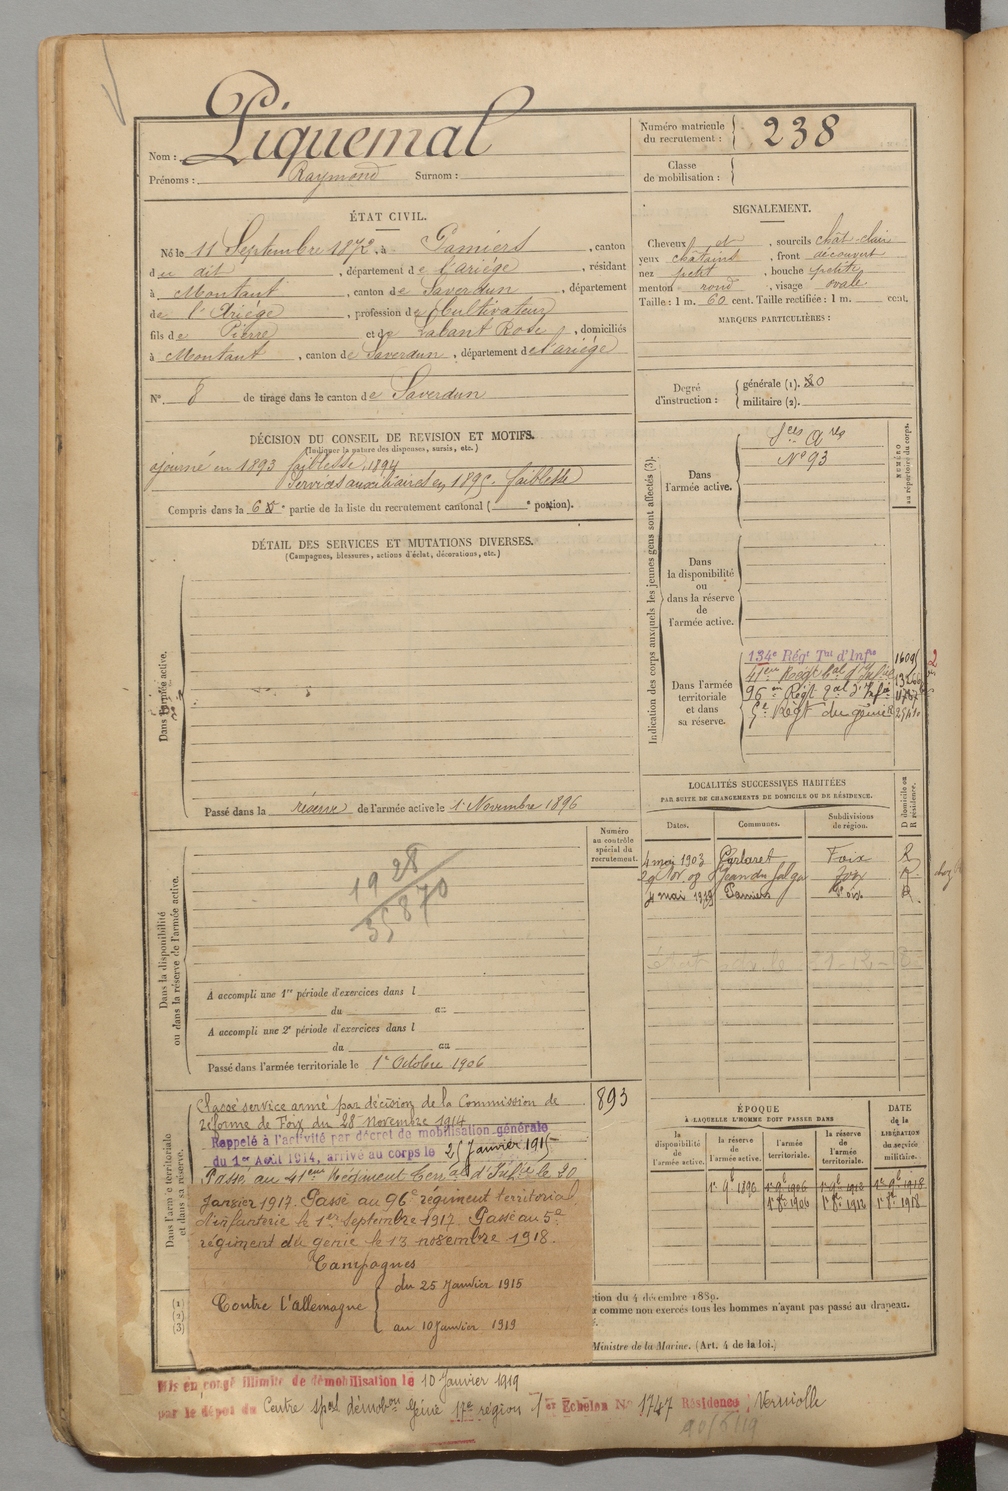 Nom : Piquemal
Prénoms : Raymond Surnom :
Numéro matricule du recrutement : 238
Classe de mobilisation :
ÉTAT CIVIL.
Né le 11 Septembre 1872, à Pamiers, canton
du dit, département de l'ariège, résidant
à Montaut, canton de Saverdun, département
de l'Ariège, profession de Cultivateur
fils de Pierre et de Labant Rose, domiciliés
à Montaut, canton de Saverdun, département de l'ariège
N°. 8 de tirage dans le canton de Saverdun
SIGNALEMENT.
Cheveux et, sourcils chât-clair
yeux châtains, front découvert
nez petit, bouche petite
menton rond, visage ovale
Taille : 1 m. 60 cent. Taille rectifiée : 1 m. cent.
MARQUES PARTICULIÈRES :
Degré d'instruction : générale (1). 20
militaire (2).
DÉCISION DU CONSEIL DE REVISION ET MOTIFS.
(Indiquer la nature des dispenses, sursis, etc.)
ajourné en 1893 faiblesse, 1894
Services auxiliaires en 1895. faiblesse
Compris dans la 6e partie de la liste du recrutement cantonal ( e portion).
DÉTAIL DES SERVICES ET MUTATIONS DIVERSES.
(Campagnes, blessures, actions d'éclat, décorations, etc.)
Dans l'armée active.
Passé dans la réserve de l'armée active le 1r Novembre 1896
Indication des corps auxquels les jeunes gens sont affectés (3).
NUMÉRO au répertoire du corps.
Dans l'armée active.
Sces Ares
N° 93
Dans la disponibilité ou dans la réserve de l'armée active.
Dans l'armée territoriale et dans sa réserve.
134e Régt Tal d'Infie
41em Régt tal d'Infie
96em Régt tal d'Infie
5e Régt du génie
LOCALITÉS SUCCESSIVES HABITÉES
PAR SUITE DE CHANGEMENTS DE DOMICILE OU DE RÉSIDENCE.
Dates. Communes. Subdivisions de région. D domicile ou R résidence.
4 mai 1903 Carlaret Foix R
St Jean du Falga Foix R.
4 mai 1919 Pamiers Foix R.
Dans la disponibilité ou dans la réserve de l'armée active.
Numéro au contrôle spécial du recrutement.
1928
35870
A accompli une 1re période d'exercices dans l
du au
A accompli une 2e période d'exercices dans l
du au
Passé dans l'armée territoriale le 1r Octobre 1906
Dans l'armée territoriale et dans sa réserve.
893
Classé service armé par décision de la Commission de
réforme de Foix du 28 novembre 1914
Rappelé à l'activité par décret de mobilisation générale
du 1er Août 1914, arrivé au corps le 25 Janvier 1915
Passé au 41eme Régiment Terral d'Infie le 20
Janvier 1917. Passé au 96e régiment territorial
d'infanterie le 1er Septembre 1917. Passé au 5e
régiment du génie le 13 novembre 1918.
Campagnes
Contre l'allemagne du 25 Janvier 1915
au 10 Janvier 1919
ÉPOQUE
À LAQUELLE L'HOMME DOIT PASSER DANS
la disponibilité de l'armée active. la réserve de l'armée active. l'armée territoriale. la réserve de l'armée territoriale.
DATE de la LIBÉRATION du service militaire.
1r 9b 1896 1r 9b 1906 1r 9b 1912 1r 9b 1918
1r 8b 1906 1r 8b 1912 1r 8b 1918
(1)
(2)
(3)
ction du 4 décembre 1889.
comme non exercés tous les hommes n'ayant pas passé au drapeau.
Ministre de la Marine. (Art. 4 de la loi.)
Mis en congé illimité de démobilisation le 10 Janvier 1919
par le dépôt du Centre spal démobon Génie 17e région 1er Echelon N° 1747 Résidence : Verniolle